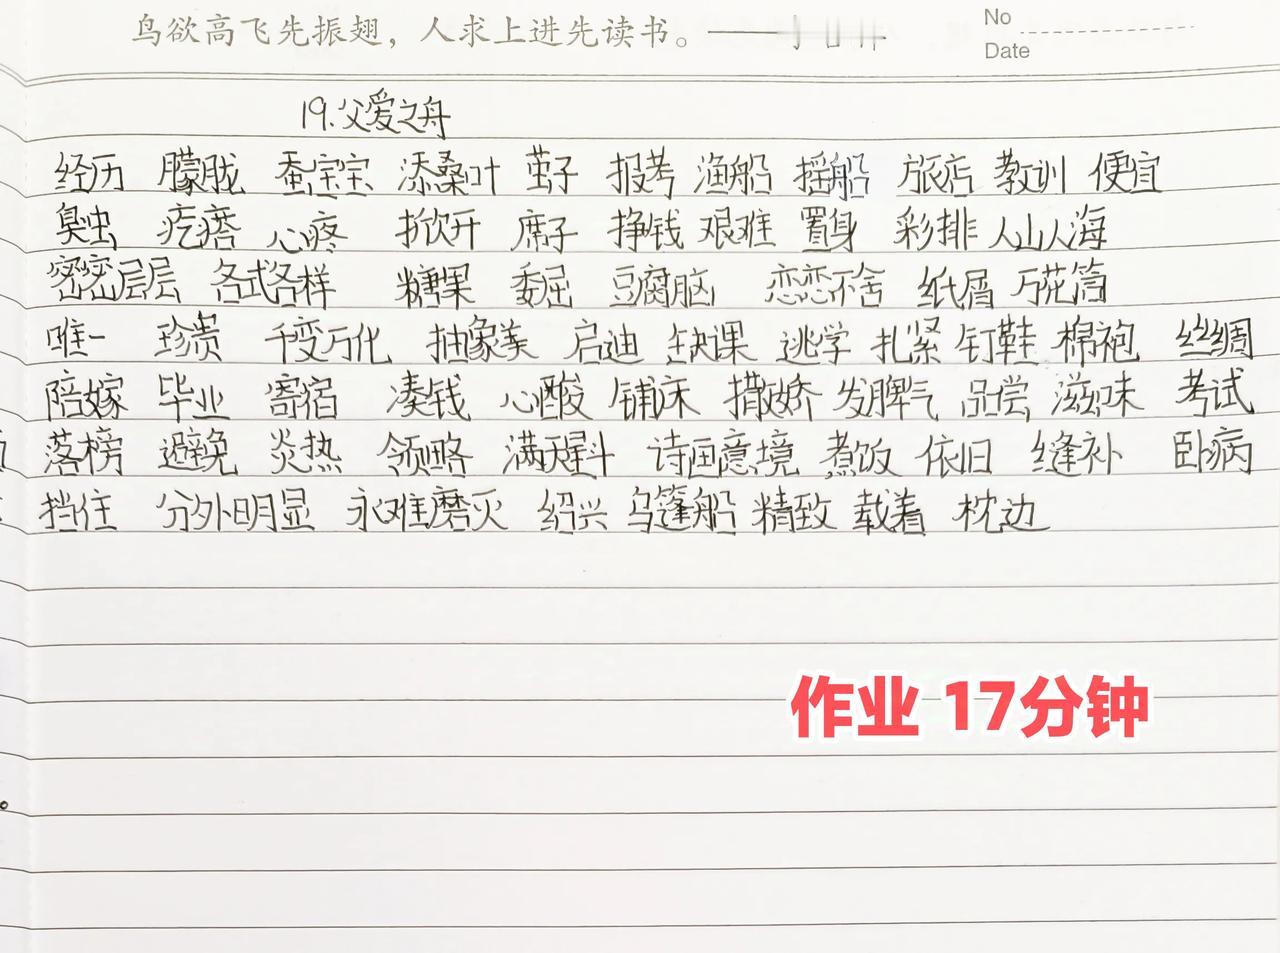 鸟欲高飞先振翅，人求上进先读书。——
No
Date
19.父爱之舟
经历 朦胧 蚕宝宝 添桑叶 茧子 报考 渔船 摇船 旅店 教训 便宜
臭虫 疙瘩 心疼 掀开 席子 挣钱 艰难 置身 彩排 人山人海
密密层层 各式各样 糖果 委屈 豆腐脑 恋恋不舍 纸屑 万花筒
唯一 珍贵 千变万化 抽象美 启迪 缺课 逃学 扎紧 钉鞋 棉袍 丝绸
陪嫁 毕业 寄宿 凑钱 心酸 铺床 撒娇 发脾气 品尝 滋味 考试
落榜 避免 炎热 领略 满天星斗 诗画意境 煮饭 依旧 缝补 卧病
挡住 分外明显 永难磨灭 绍兴 乌篷船 精致 载着 枕边
作业 17分钟